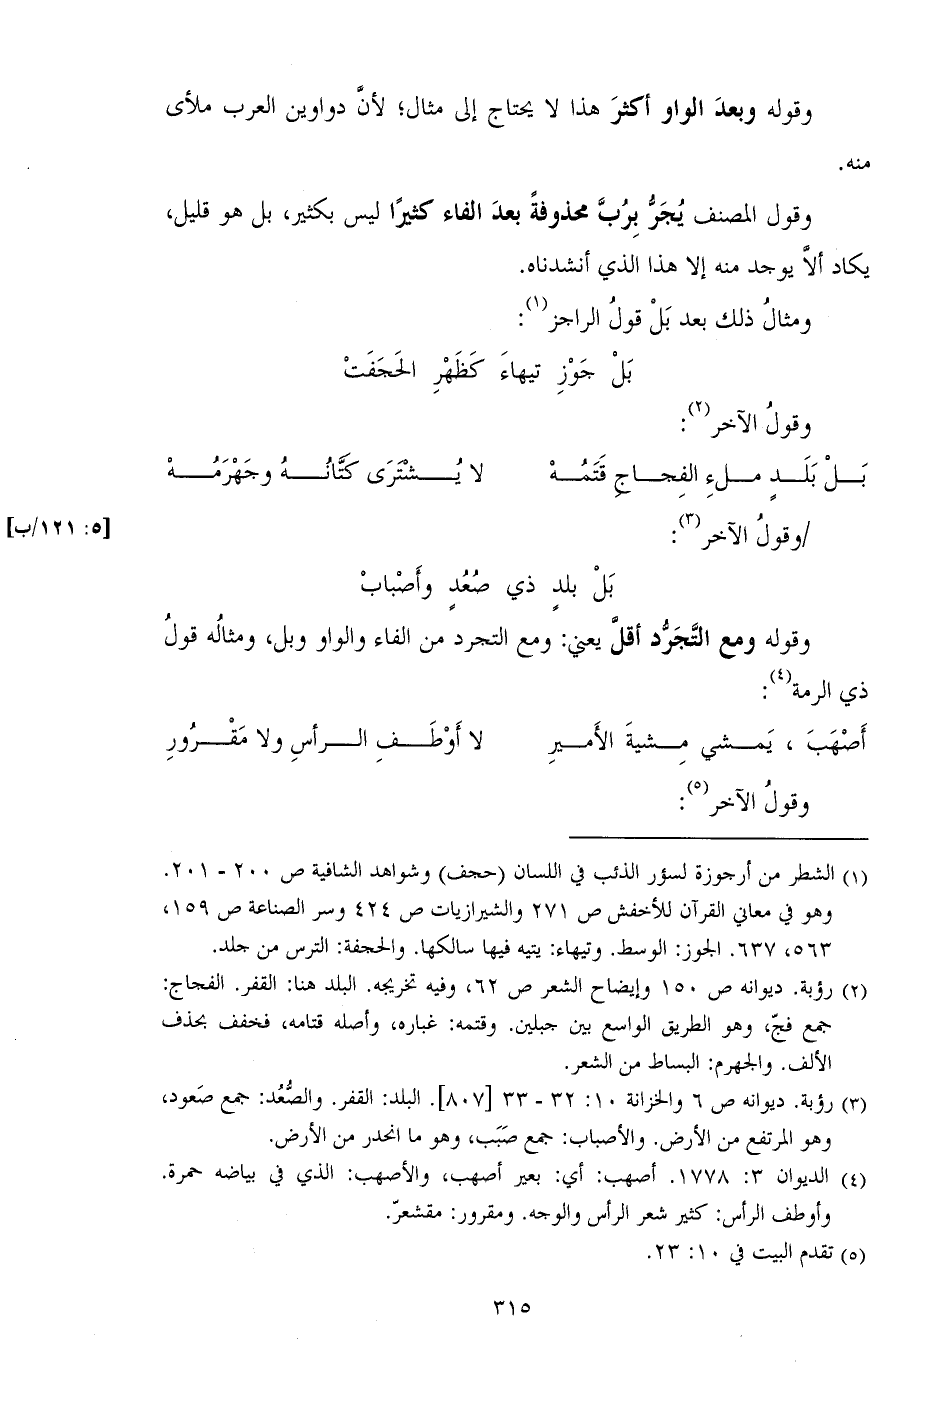 وقوله وبعدَ الواو أكثرَ هذا لا يحتاج إلى مثال؛ لأنَّ دواوين العرب ملأى
منه.
وقول المصنف يُجَرُّ بِرُبَّ محذوفةً بعدَ الفاء كثيرًا ليس بكثير، بل هو قليل،
يكاد ألاَّ يوجد منه إلا هذا الذي أنشدناه.
ومثالُ ذلك بعد بَلْ قولُ الراجز(١):
بَلْ جَوْزِ تيهاءَ كَظَهْرِ الحَجَفَتْ
وقولُ الآخر(٢):
بَـلْ بَلَـدٍ مـلءِ الفِجـاجِ قَتَمُـهْ لا يُـشْتَرَى كَتَّانُـهُ وجَهْرَمُـهْ
/وقولُ الآخر(٣): [٥: ١٢١/ب]
بَلْ بلدٍ ذي صُعُدٍ وأَصْبابْ
وقوله ومع التَّجَرُّد أقلَّ يعني: ومع التجرد من الفاء والواو وبل، ومثالُه قولُ
ذي الرمة(٤):
أَصْهَبَ ، يَمـشي مِـشيةَ الأَمـيرِ لا أَوْطَـفِ الـرأسِ ولا مَقْـرُورِ
وقولُ الآخر(٥):
(١) الشطر من أرجوزة لسؤر الذئب في اللسان (حجف) وشواهد الشافية ص ٢٠٠ - ٢٠١.
وهو في معاني القرآن للأخفش ص ٢٧١ والشيرازيات ص ٤٢٤ وسر الصناعة ص ١٥٩،
٥٦٣، ٦٣٧. الجوز: الوسط. وتيهاء: يتيه فيها سالكها. والحجفة: الترس من جلد.
(٢) رؤبة. ديوانه ص ١٥٠ وإيضاح الشعر ص ٦٢، وفيه تخريجه. البلد هنا: القفر. الفجاج:
جمع فجّ، وهو الطريق الواسع بين جبلين. وقتمه: غباره، وأصله قتامه، فخفف بحذف
الألف. والجهرم: البساط من الشعر.
(٣) رؤبة. ديوانه ص ٦ والخزانة ١٠: ٣٢ - ٣٣ [٨٠٧]. البلد: القفر. والصُّعُد: جمع صَعود،
وهو المرتفع من الأرض. والأصباب: جمع صَبَب، وهو ما انحدر من الأرض.
(٤) الديوان ٣: ١٧٧٨. أصهب: أي: بعير أصهب، والأصهب: الذي في بياضه حمرة.
وأوطف الرأس: كثير شعر الرأس والوجه. ومقرور: مقشعرّ.
(٥) تقدم البيت في ١٠: ٢٣.
٣١٥